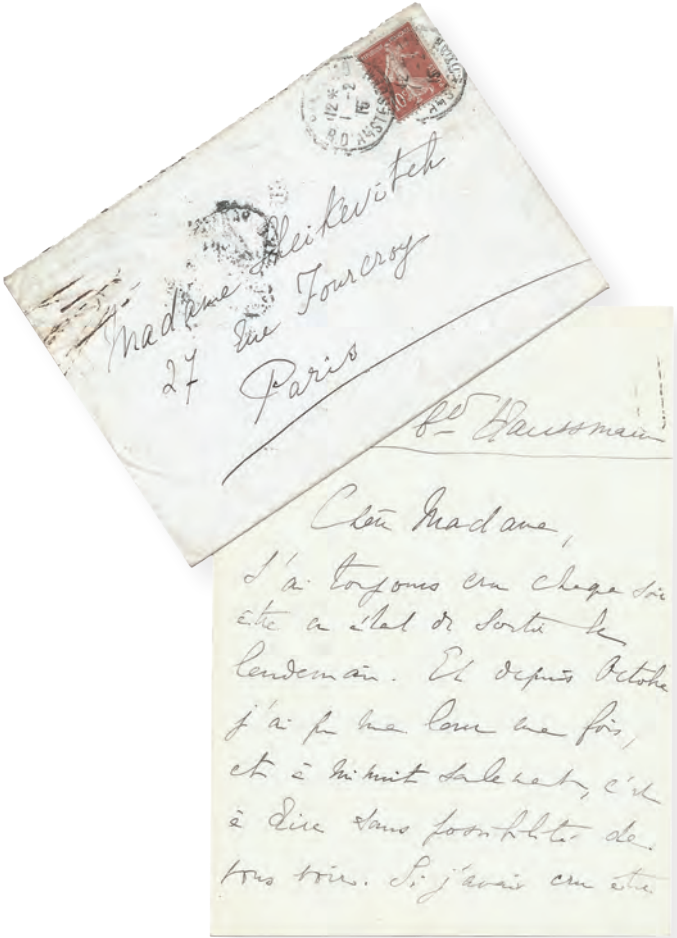 12*
1-2
15
R.D.
10
Madame Scheikevitch
27 rue Fourcroy
Paris
Bd Haussmann
Chère Madame,
J'ai toujours cru chaque soir
être en état de sortir le
lendemain. Et depuis Octobre
j'ai pu me lever une fois,
et à minuit seulement, c'est
à dire sans possibilité de
vous voir. Si j'avais cru être